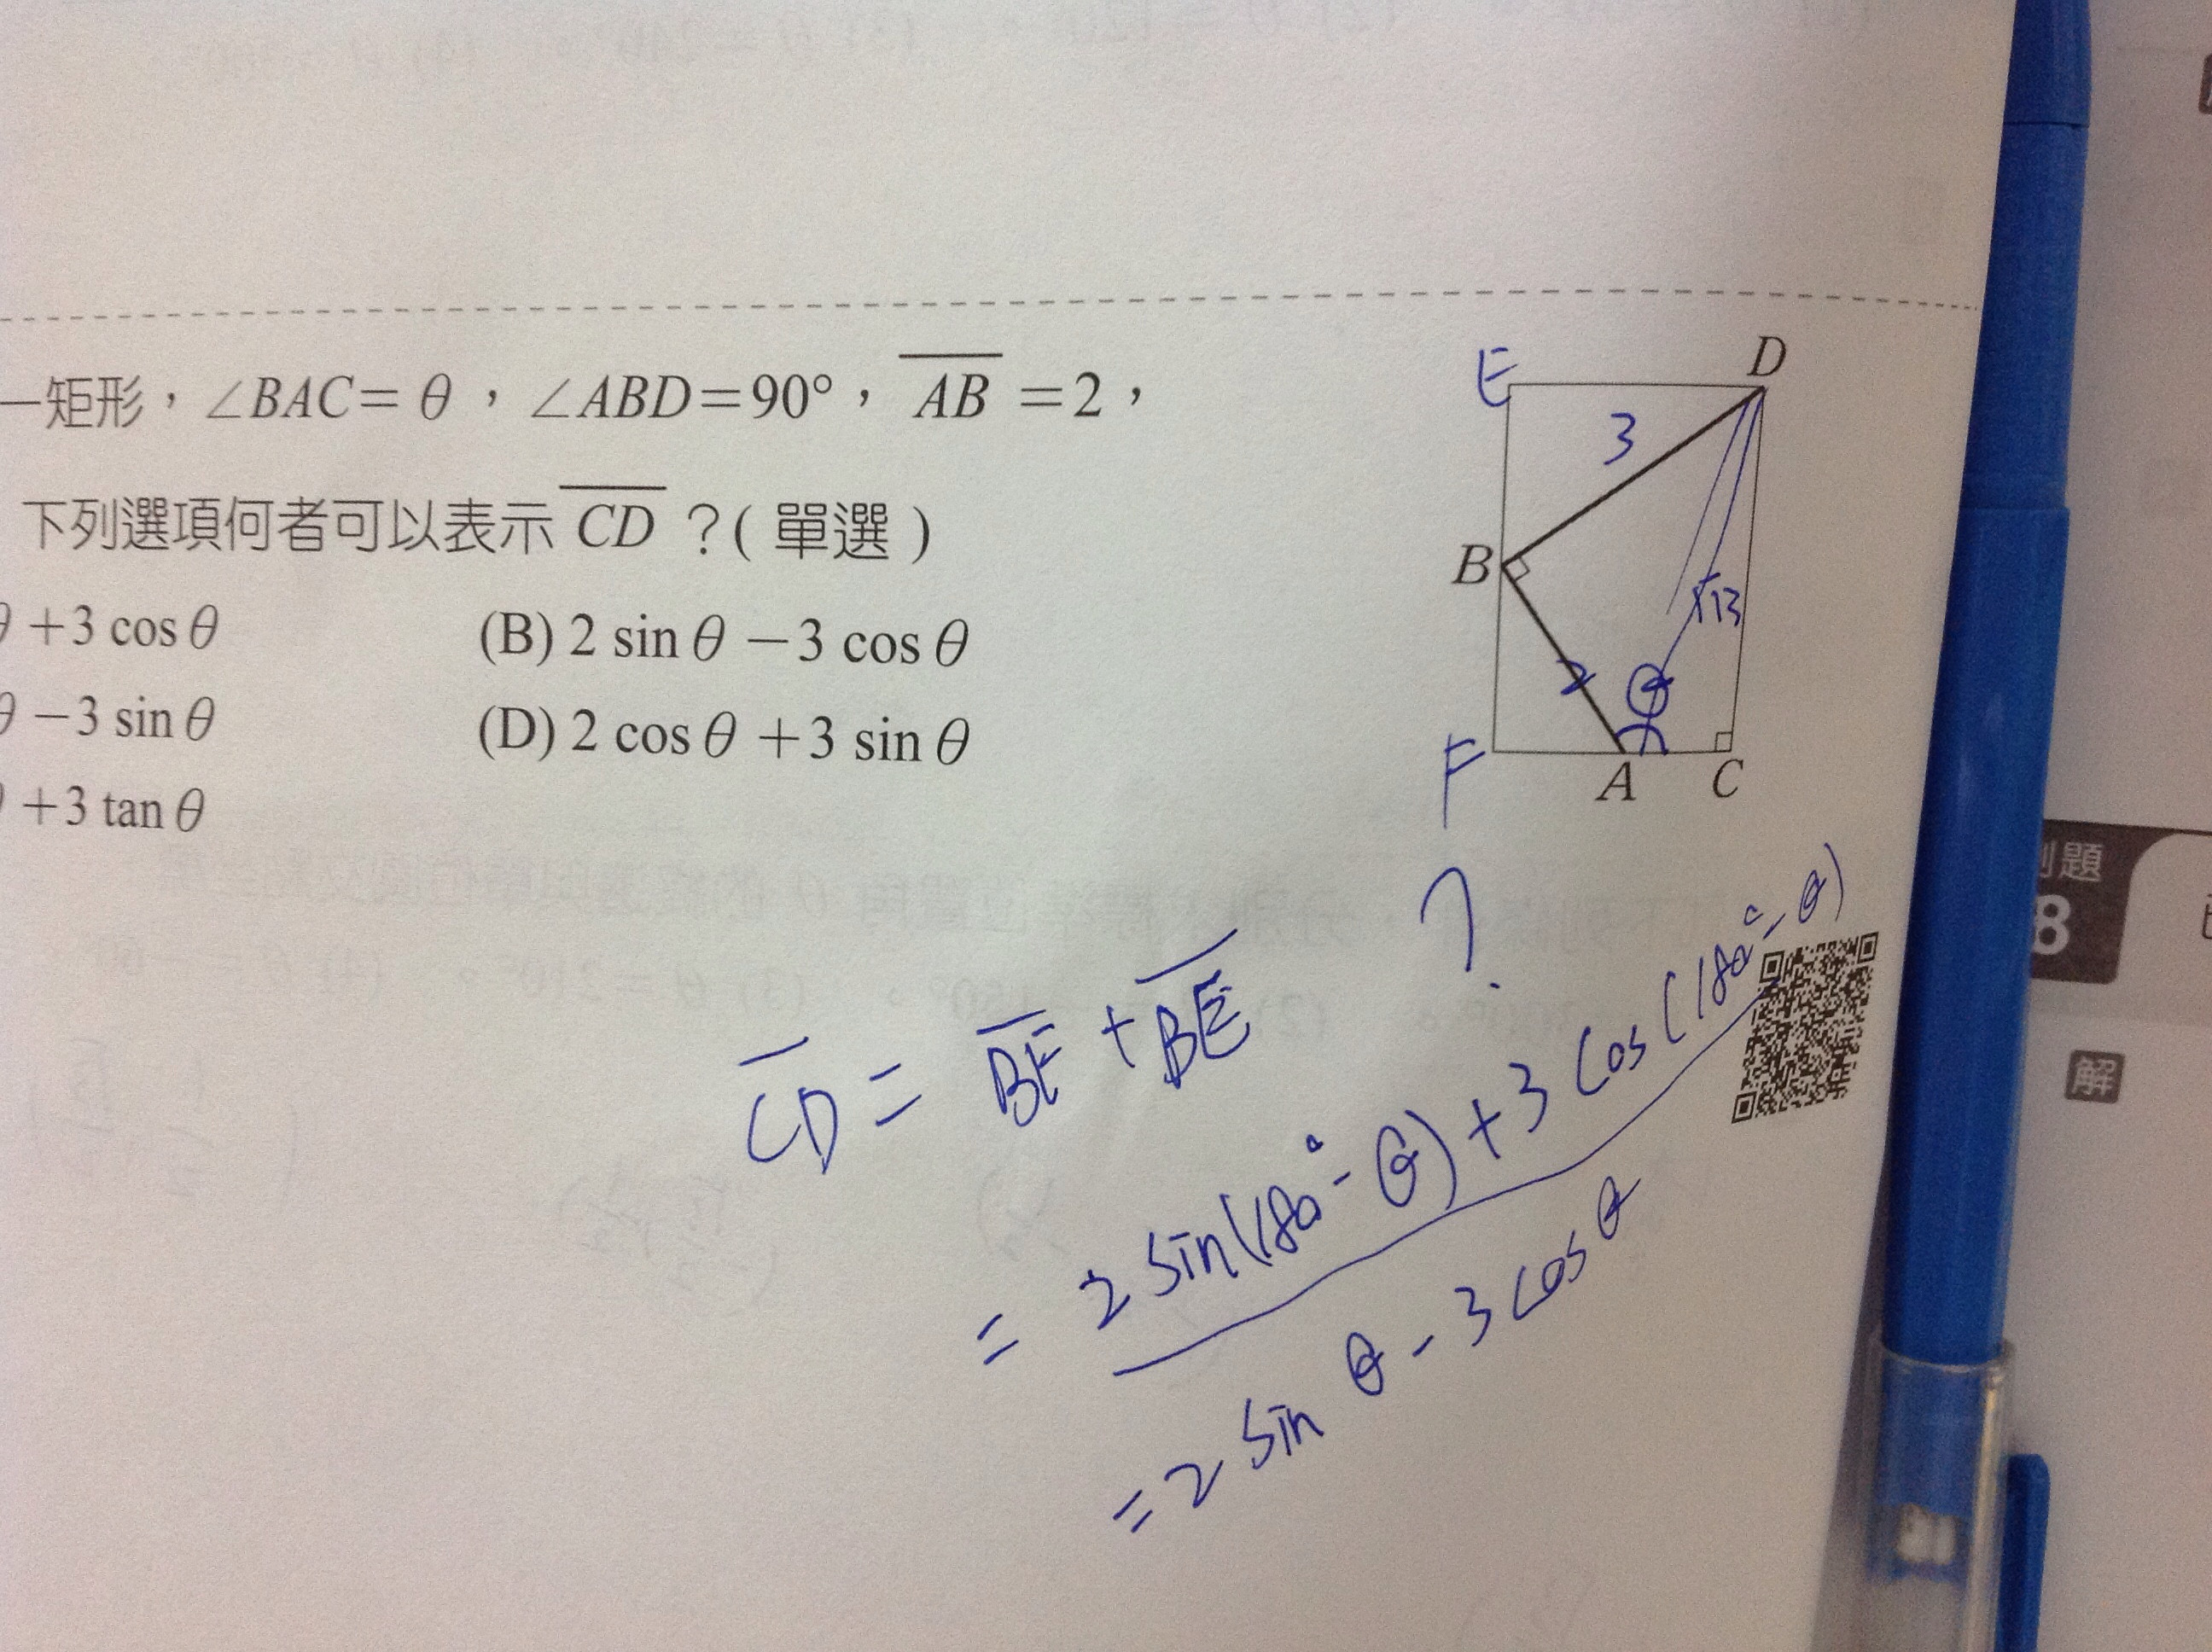 一矩形，∠BAC=θ，∠ABD=90°，AB=2，
下列選項何者可以表示 CD？(單選)
θ+3 cosθ
(B) 2 sinθ−3 cosθ
θ−3 sinθ
(D) 2 cosθ+3 sinθ
+3 tanθ
E
D
3
B
√13
2
θ
F
A
C
?
CD = BF + BE
= 2 sin(180°-θ) + 3 cos(180°-θ)
= 2 sin θ - 3 cos θ
例題
8
解